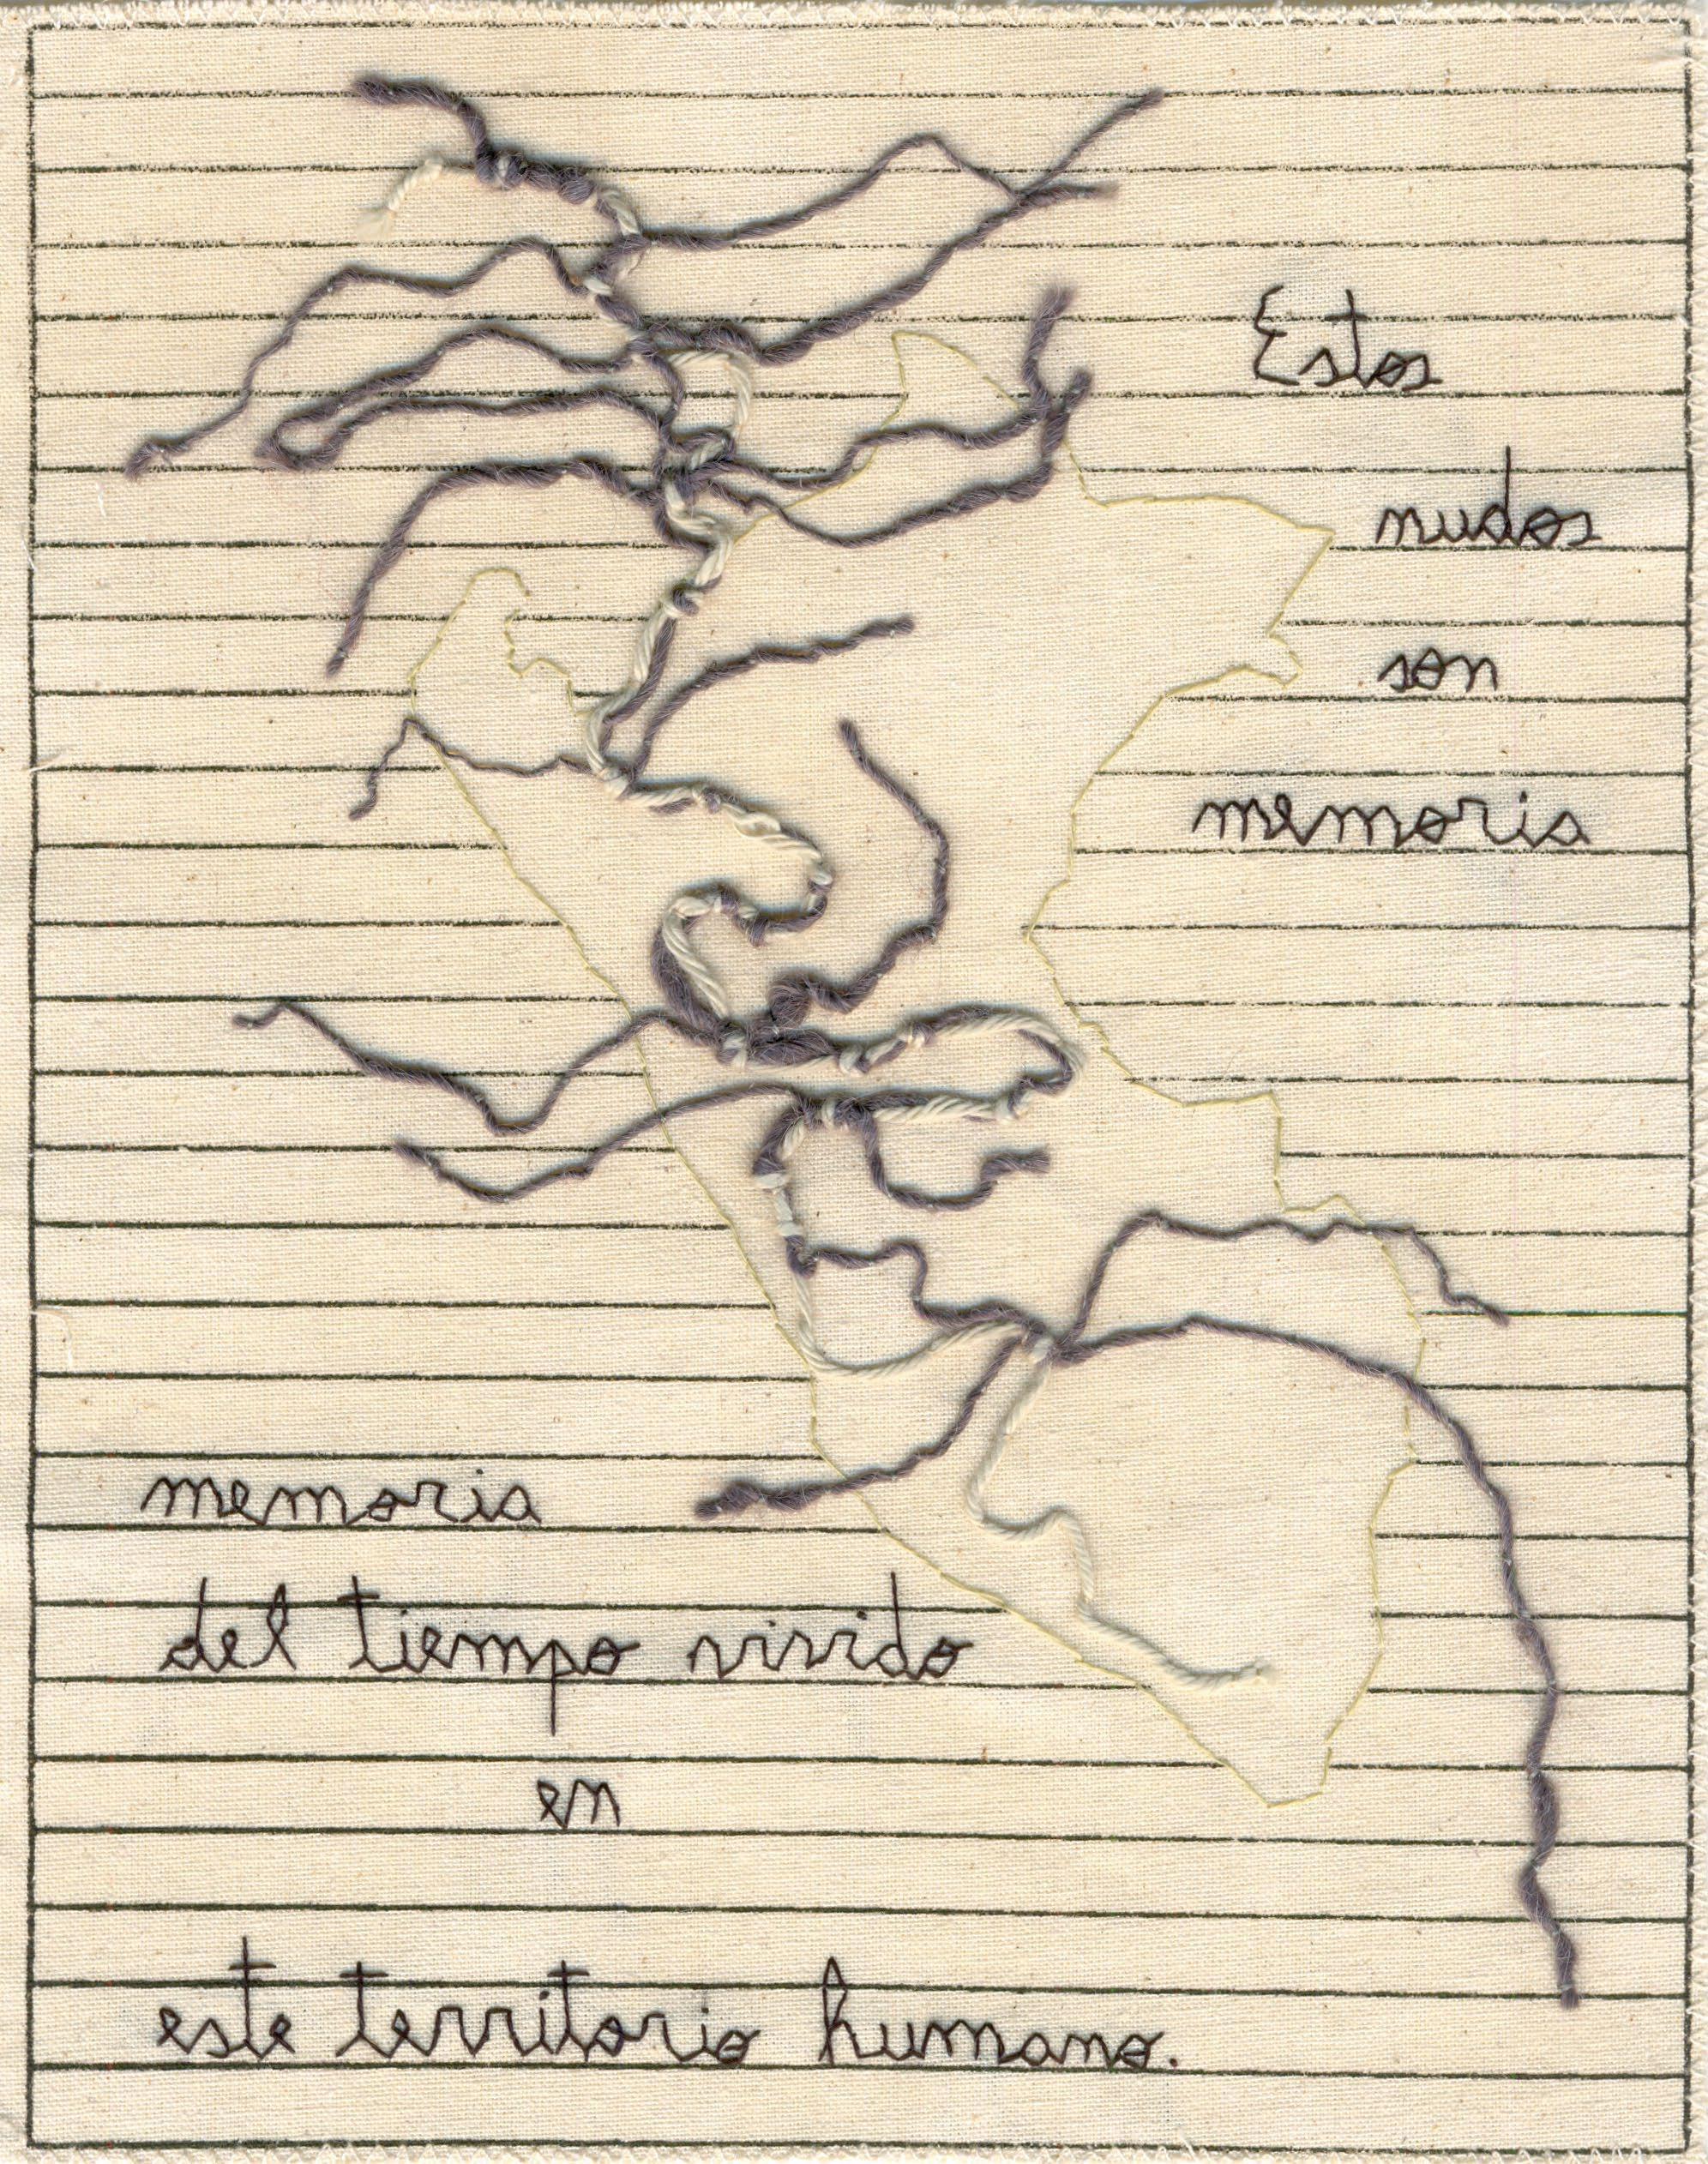 Estos
nudos
son
memoria
memoria
del tiempo vivido
en
este territorio humano.